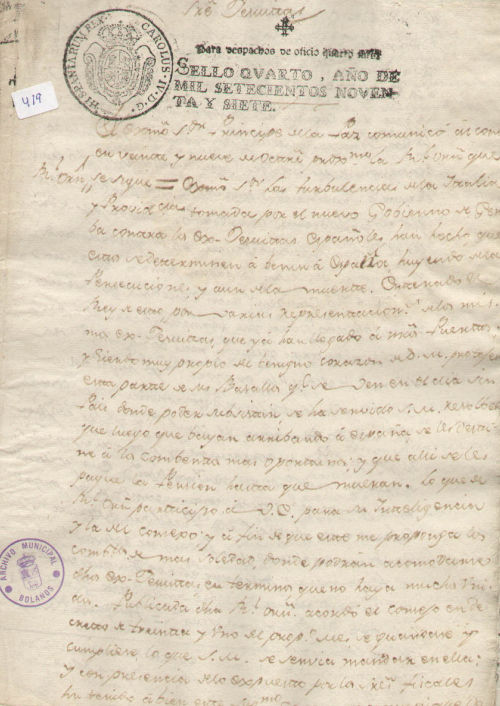 Sre Jesuitas
HISPANIARUM REX. CAROLUS. IV. D. G.
Para despachos de oficio quatro mrs.
SELLO QVARTO, AÑO DE
MIL SETECIENTOS NOVEN-
TA Y SIETE.
419
El Exmo Sor Principe de la Paz comunicó al con
en veinte y nueve de octre proxmo la Rl orn que
Rl Orn se sigue = Exmo Sor Las turbulencias de la Italia
y Provids tomadas por el nuevo Gobierno de Geno
ba contra los ex-Jesuitas Españoles, han hecho que
estos se determinen á benir á España huyendo de la
Persecucion, y aun de la muerte. Enterado el
Rey de esto por varias representacions de los mis
mos ex-Jesuitas que ya han llegado á nros Puertos,
y siendo muy propio del benigno corazon de S. M. proteger
esta parte de sus Basallos qe se ven en el dia sin
Pais donde poder subsistir se ha servido S. M. resolber
que luego que bayan arribando á españa se les desti
ne á los combentos mas oportunos, y que alli se les
pague la Pension hasta que mueran. Lo que de
Rl orn participo á V. E. para su Inteligencia
y la del consejo y á fin de que este me proponga los
combtos de mas soledad donde podran acomodarse
dhos ex-Jesuitas en termino que no haya mucha Uni
on. Publicada dha Rl orn acordó el consejo en de
creto de treinta y uno del propo mes, se guardase y
cumpliese lo que S. M. se servia mandar en ella;
y con presencia de lo expuesto por los Sres fiscales
ha tenido á bien este
ARCHIVO MUNICIPAL
BOLAÑOS